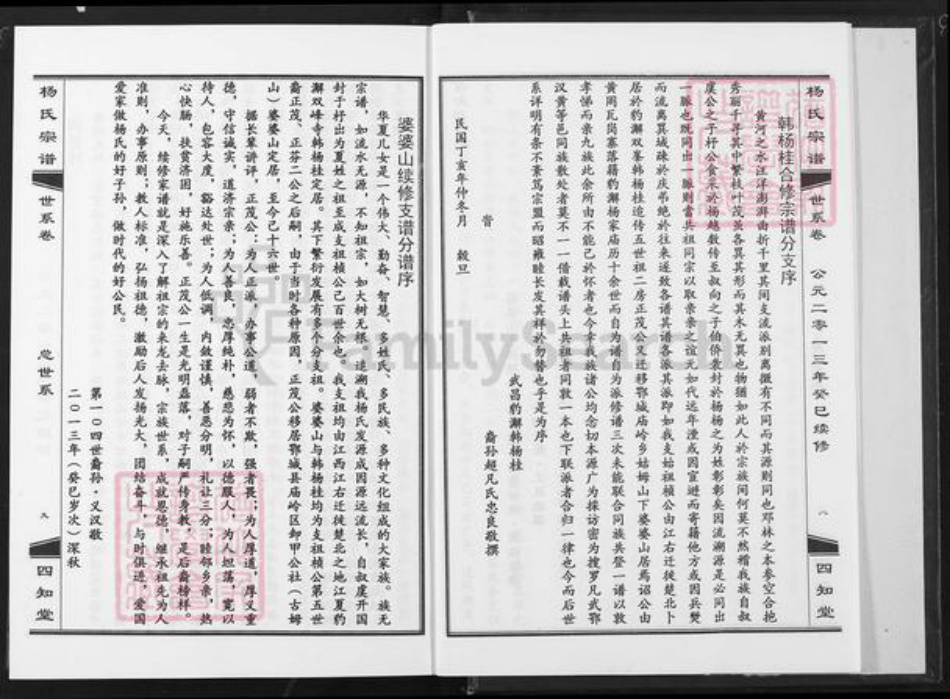 杨氏宗谱
世系卷
公元二零一三年癸巳续修
八
四知堂
韩杨桂合修宗谱分支序
黄河之水江洋澎湃曲折千里其间支流派别离微有不同而其源则同也邓林之本参空合抱
秀丽千寻其中繁枝叶茂虽各异其形而其木无异也物犹如此人於宗族间何莫不然稽我族自叔
虞公之子杼公食采於杨越数传至叔向之子伯侨袁封於杨杨之为姓彰彰矣因流溯源是必同出
一脉也既同出一脉则当共祖同宗以取亲亲之谊无如代远年湮或因宦遊而寄籍他方或因兵燹
而流离异域疎於庆弔绝於往来遂致各谱其谱各派其派即如我支始祖楨公由江右迁徙楚北卜
居於豹澥双峯韩杨桂造传五世祖二房正茂公又迁移鄂城庙岭乡姑姆山下婆婆山居焉诏公由
黄岡瓦岗寨落籍豹澥杨家庙历十余世而自为谱自为派修谱三次未能联合同族共登一谱以敦
孝悌而亲九族此余所由不能己於怀者也今幸我族诸公均念切本源广为採访密为搜罗凡武鄂
汉黄等邑同族散处者莫不一一借载谱头上共祖者同敦一本也下联派者合归一律也今而后世
系详明有条不紊笃宗盟而昭雍睦长发其祥於勿替也乎是为序
武昌豹澥韩杨桂
裔孙超凡氏忠良敬撰
民国丁亥年仲冬月 榖旦
杨氏宗谱
世系卷
总世系
九
四知堂
婆婆山续修支谱分谱序
华夏儿女是一个伟大、勤奋、智慧、多姓氏、多民族、多种文化组成的大家族。族无
宗谱，如流水无源，不知祖宗，如大树无根。追溯我杨氏发源成因源远流长，自叔虞开国
封于杼出为夏姓之祖至成支祖楨公己百世余也。我支祖均由江西江右迁徙楚北之地江夏豹
澥双峰寺韩杨桂定居。其下繁衍发展有多个分支祖。婆婆山与韩杨桂均为支祖楨公第五世
裔正茂、正芬二公之后嗣，由于当时各种原因，正茂公移居鄂城县庙岭区卸甲公社（古姆
山）婆婆山定居，至今己十六世。
据长辈讲评，正茂公：为人正派，办事公道，弱者不欺，强者畏；为人厚道，厚义重
德，守信诚实，道济宗亲；为人善良，忠厚纯朴，慈悲为怀，以德服人，为人坦荡，宽以
待人，包容大度，豁达处世；为人低调，内敛谨慎，善恶分明，礼让三分；睦邻乡亲，热
心快肠，扶贫济困，好施乐善。正茂公一生是光明磊落，对子嗣严传身教，是后裔榜样。
今天，续修家谱就是深入了解祖宗的来龙去脉，宗族世系，成就恩德，继承祖先为人
准则，办事原则；教人标准，弘扬祖德，激励后人发扬光大，团结奋斗，与时俱进，爱国
爱家做杨氏的好子孙，做时代的好公民。
第一〇四世裔孙·义汉敬
二〇一三年（癸巳岁次）深秋
FamilySearch